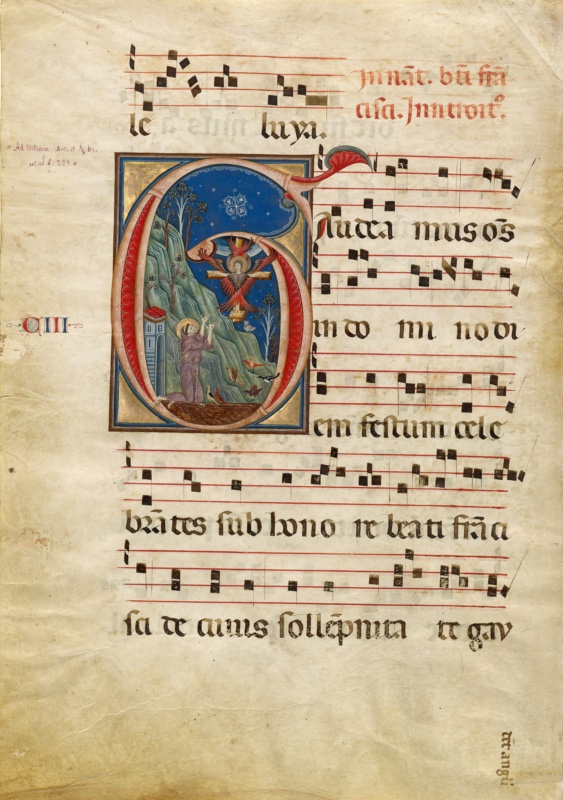 In nat̄. bt̄i frā
cisci. Introit⁹.
le luya.
Gaudea mus oēs
CIII
in do mi no di
em festum cele
brātes sub hono re beati frāci
sci de cuius sollēpnita te gau